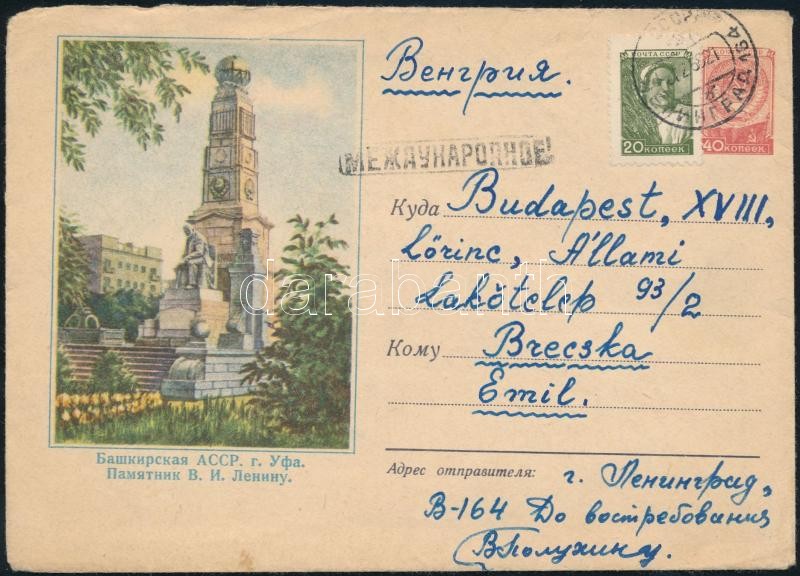 Венгрия.
ПОЧТА СССР
20 КОПЕЕК
40 КОПЕЕК
МЕЖДУНАРОДНОЕ
Куда Budapest, XVIII,
Lőrinc, Állami
Lakótelep 93/2
Кому Brecska
Emil.
Башкирская АССР. г. Уфа.
Памятник В. И. Ленину.
Адрес отправителя: г. Ленинград,
В-164 До востребования
В Полухину.
darabanth